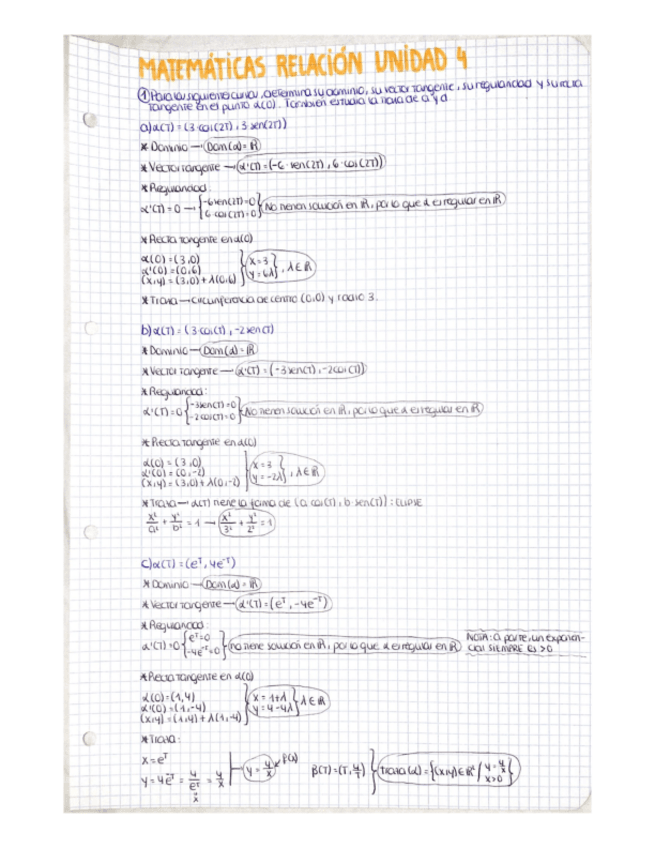 MATEMÁTICAS RELACIÓN UNIDAD 4
① Para las siguientes curvas, determina su dominio, su vector tangente, su regularidad y su recta
tangente en el punto α(0). También estudia la traza de a y d
a) α(T) = (3·cos(2T), 3·sen(2T))
* Dominio → Dom(α) = ℝ
* Vector tangente → α'(T) = (-6·sen(2T), 6·cos(2T))
* Regularidad:
α'(T) = 0 → { -6 sen(2T) = 0
6·cos(2T) = 0 } No tienen solución en ℝ, por lo que α es regular en ℝ
* Recta tangente en α(0)
α(0) = (3,0)
α'(0) = (0,6)
(x,y) = (3,0) + λ(0,6) } x = 3
y = 6λ } , λ ∈ ℝ
* Traza → circunferencia de centro (0,0) y radio 3.
b) α(T) = (3·cos(T), -2sen(T)
* Dominio → Dom(α) = ℝ
* Vector tangente → α'(T) = (-3sen(T), -2cos(T))
* Regularidad:
α'(T) = 0 { -3sen(T) = 0
-2cos(T) = 0 } No tienen solución en ℝ, por lo que α es regular en ℝ
* Recta tangente en α(0)
α(0) = (3,0)
α'(0) = (0,-2)
(x,y) = (3,0) + λ(0,-2) } x = 3
y = -2λ } , λ ∈ ℝ
* Traza → α(T) tiene la forma de (a·cos(T), b·sen(T)): ELIPSE
x²/a² + y²/b² = 1 → x²/3² + y²/2² = 1
c) α(T) = (e^T, 4e^-T)
* Dominio → Dom(α) = ℝ
* Vector tangente → α'(T) = (e^T, -4e^-T)
* Regularidad:
α'(T) = 0 { e^T = 0
-4e^-T = 0 } no tiene solución en ℝ, por lo que α es regular en ℝ
NOTA: a parte, un exponen-
cial SIEMPRE es >0
* Recta tangente en α(0)
α(0) = (1,4)
α'(0) = (1,-4)
(x,y) = (1,4) + λ(1,-4) } x = 1+λ
y = 4-4λ } λ ∈ ℝ
* Traza:
x = e^T
y = 4e^-T = 4/e^T = 4/x
x
y = 4/x β(α)
β(T) = (T, 4/T) } traza(α) = {(x,y) ∈ ℝ² / y = 4/x
x>0 }